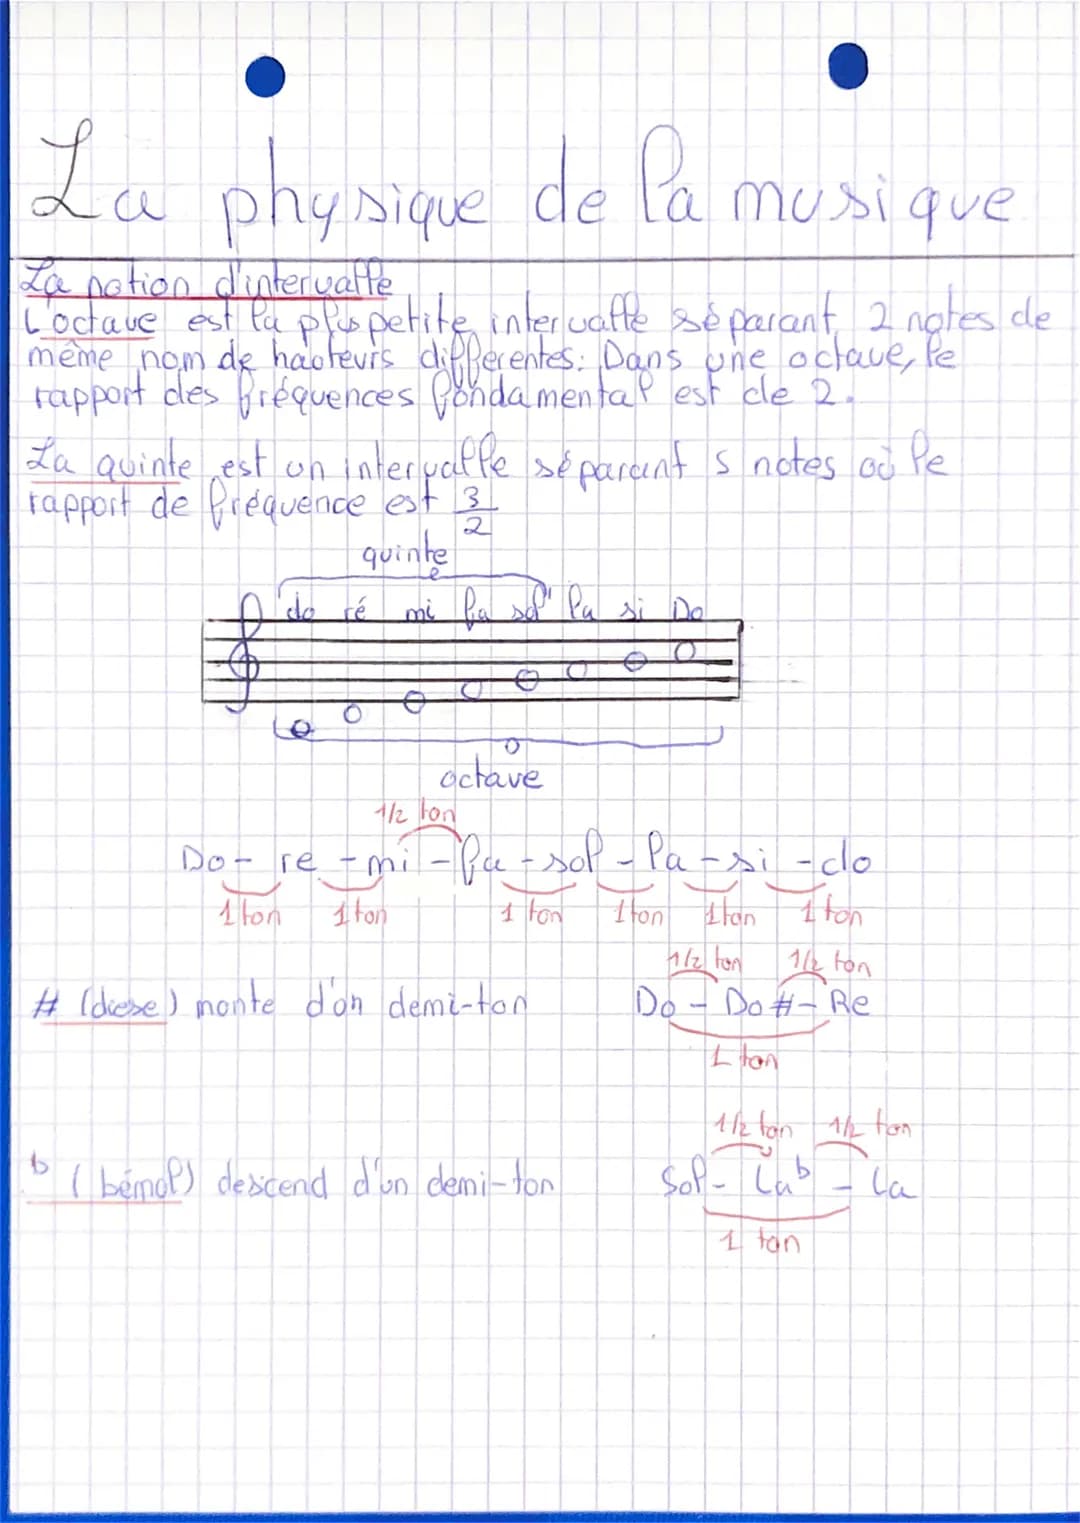 La physique de la musique
La notion d'intervalle
L'octave est la plus petite intervalle séparant 2 notes de
même nom de hauteurs différentes. Dans une octave, le
rapport des fréquences fondamental est de 2.
La quinte est un intervalle séparant 5 notes où le
rapport de fréquence est 3/2
quinte
do ré mi fa sol la si Do
octave
1/2 ton
Do - re - mi - fa - sol - la - si - do
1 ton 1 ton 1 ton 1 ton 1 ton 1 ton
1/2 ton 1/2 ton
# (diese) monte d'un demi-ton Do - Do # - Re
1 ton
1/2 ton 1/2 ton
b (bémol) descend d'un demi-ton Sol - La b - La
1 ton